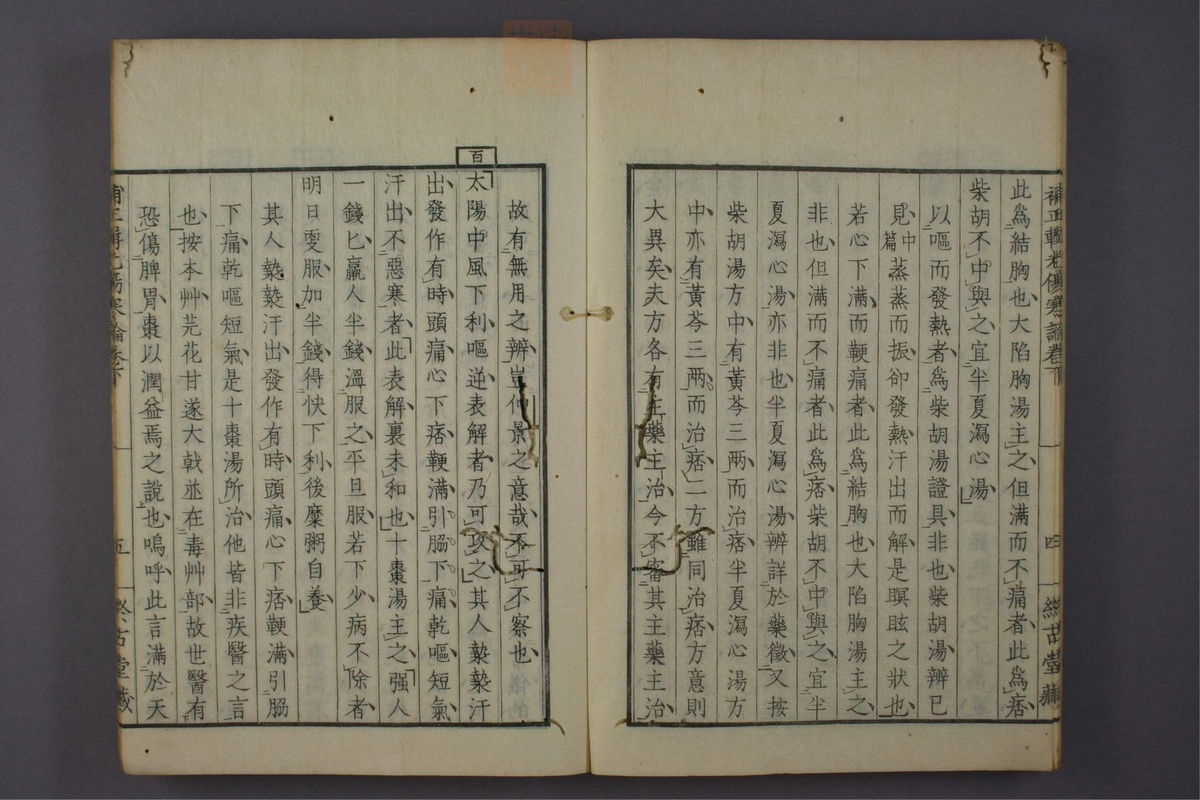 補正輯光傷寒論卷下
四
此爲結胸也大陷胸湯主之但滿而不痛者此爲痞
柴胡不中與之宜半夏瀉心湯
以嘔而發熱者爲柴胡湯證具非也柴胡湯辨已
見中篇蒸蒸而振卻發熱汗出而解是瞑眩之狀也
若心下滿而鞕痛者此爲結胸也大陷胸湯主之
非也但滿而不痛者此爲痞柴胡不中與之宜半
夏瀉心湯亦非也半夏瀉心湯辨詳於藥徵又按
柴胡湯方中有黃芩三兩而治痞半夏瀉心湯方
中亦有黃芩三兩而治痞二方雖同治痞方意則
大異矣夫方各有主藥主治今不審其主藥主治
故有無用之辨豈仲景之意哉不可不察也
百
太陽中風下利嘔逆表解者乃可攻之其人漐漐汗
出發作有時頭痛心下痞鞕滿引脇下痛乾嘔短氣
汗出不惡寒者此表解裏未和也十棗湯主之强人
一錢匕羸人半錢溫服之平旦服若下少病不除者
明日更服加半錢得快下利後糜粥自養
其人漐漐汗出發作有時頭痛心下痞鞕滿引脇
下痛乾嘔短氣是十棗湯所治他皆非疾醫之言
也按本艸芫花甘遂大戟並在毒艸部故世醫有
恐傷脾胃棗以潤益焉之說也嗚呼此言滿於天
五